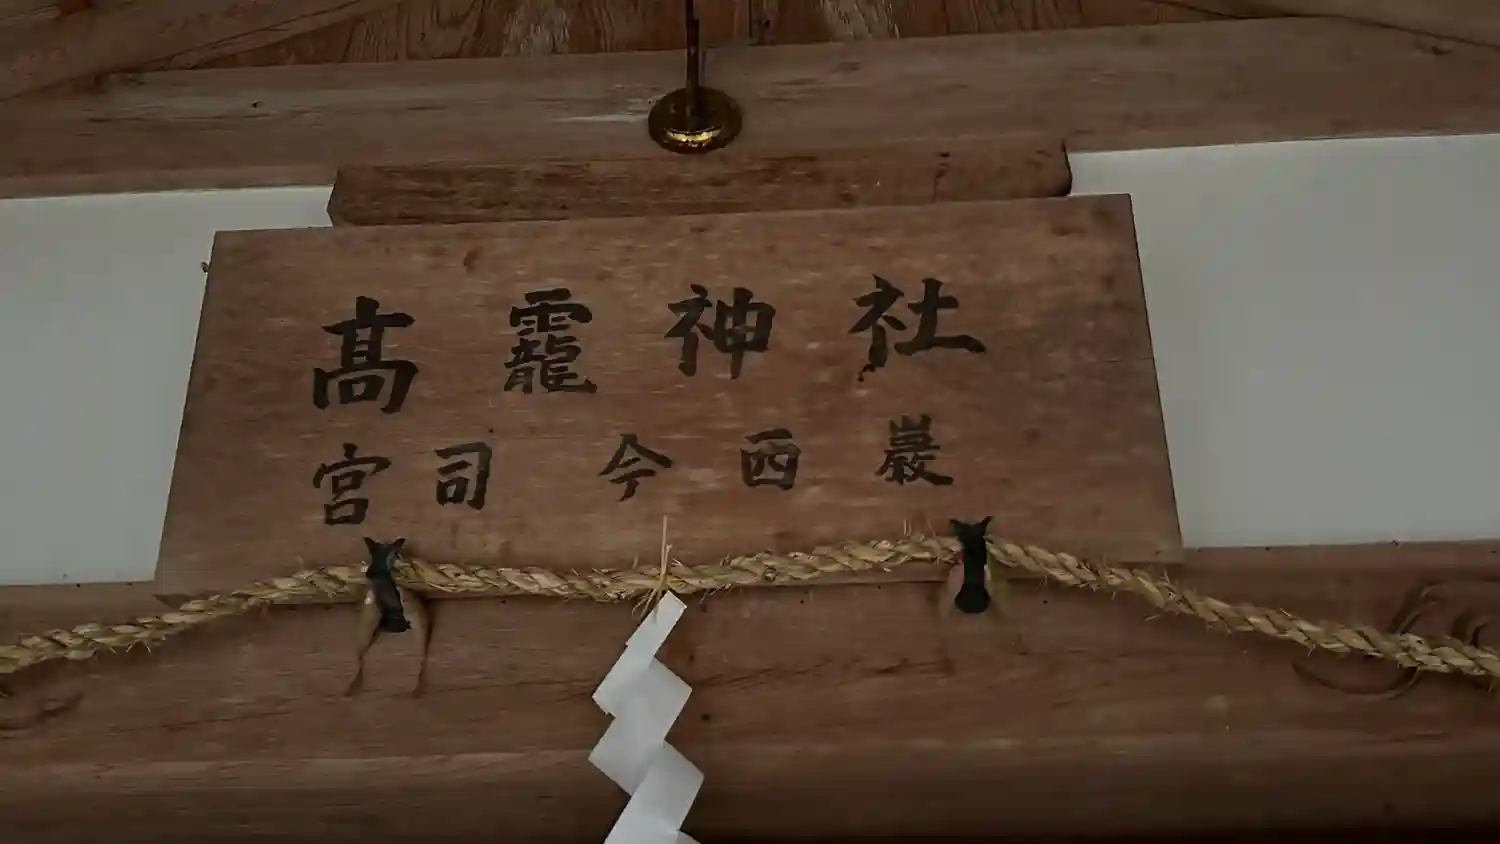 髙龗神社
宮司 今西巖